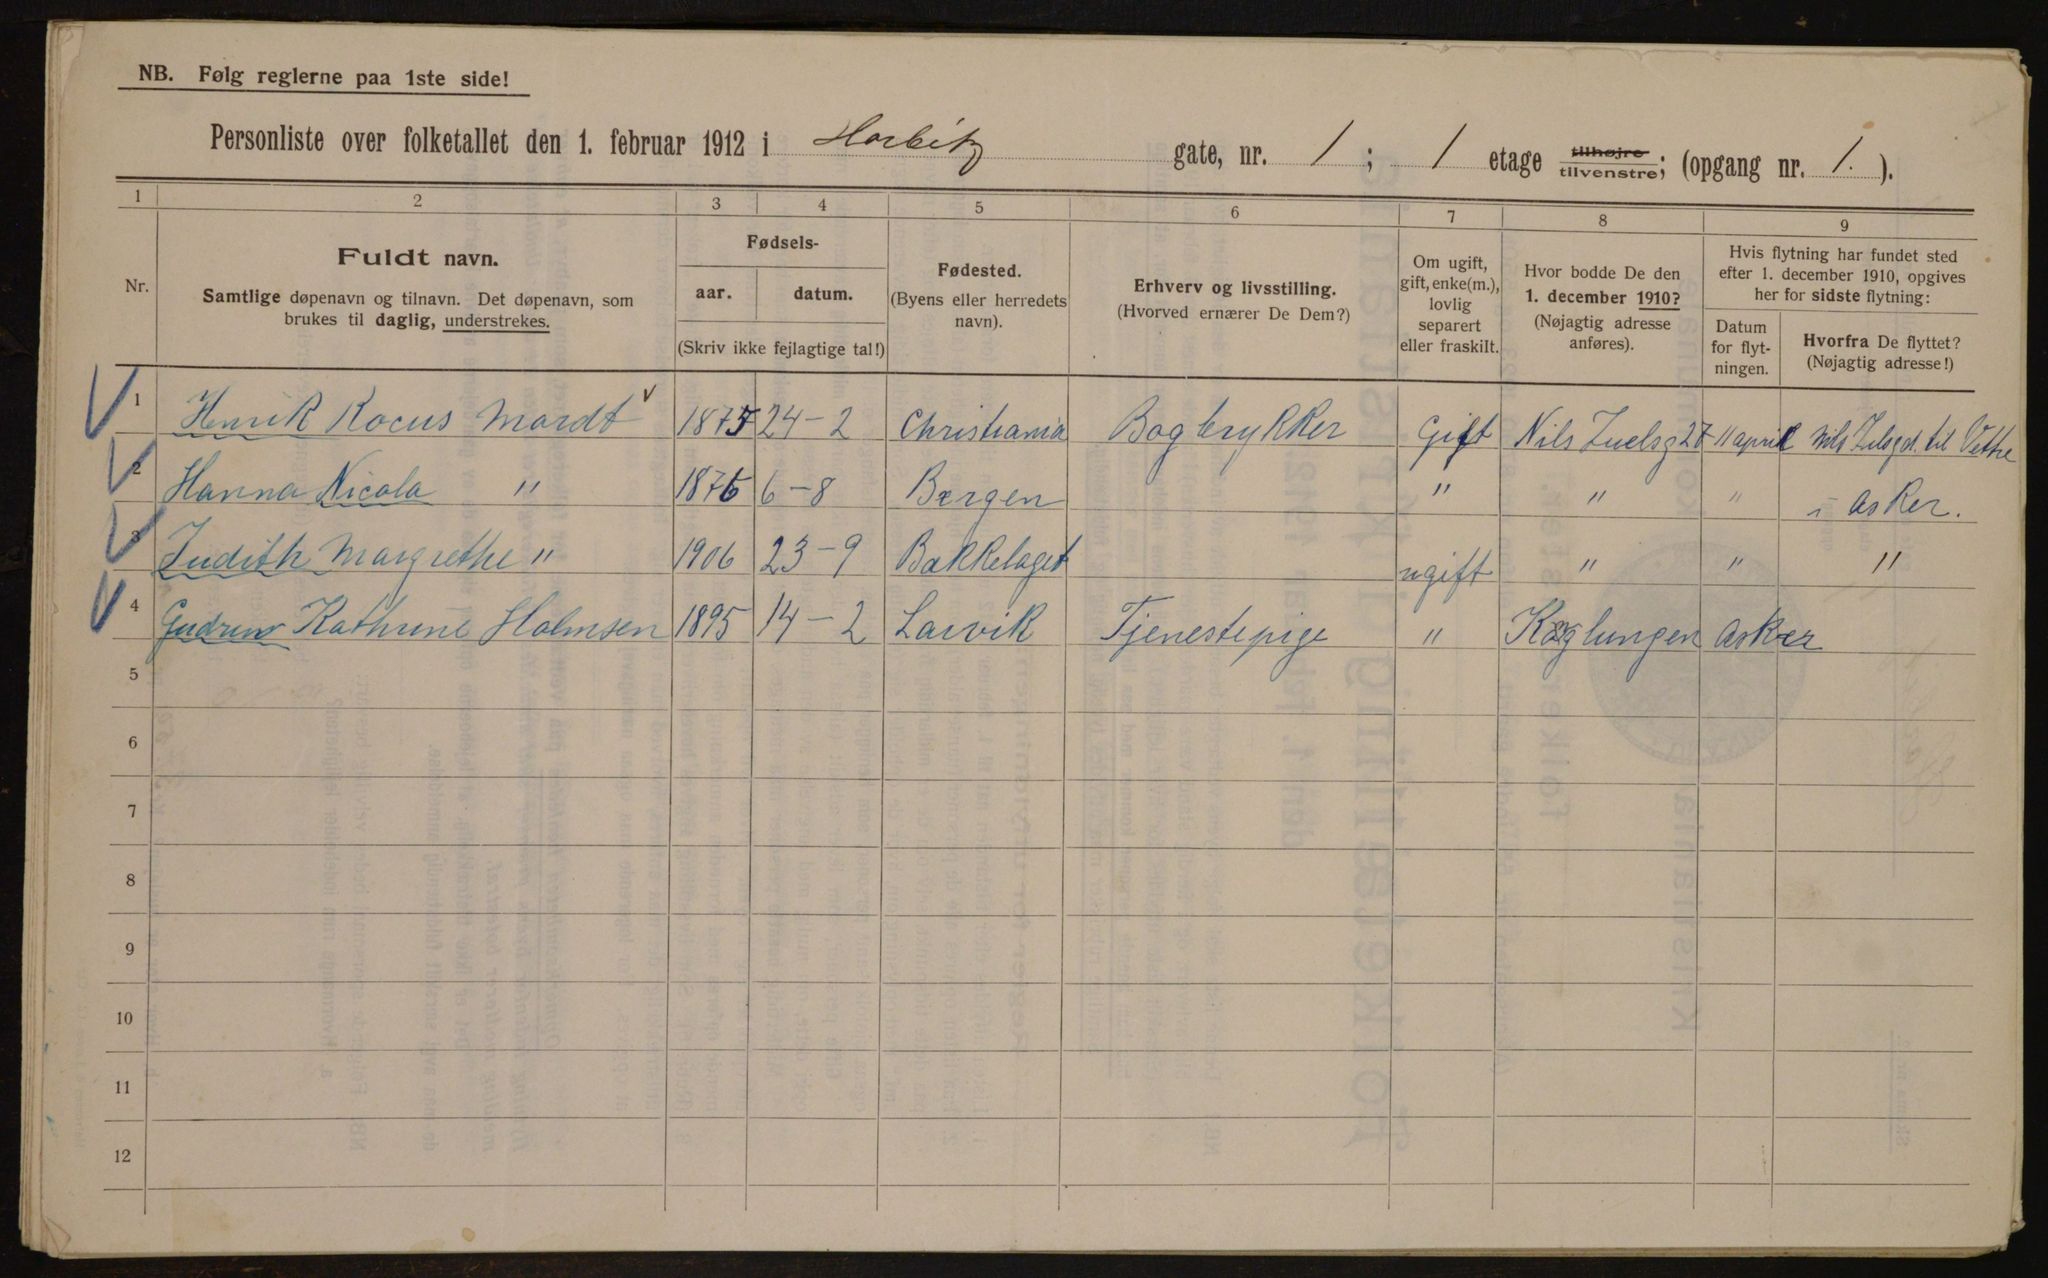 NB. Følg reglerne paa 1ste side!
Personliste over folketallet den 1. februar 1912 i Harbitz gate, nr. 1; 1 etage tilhøjre tilvenstre; (opgang nr. 1.).
1 2 3 4 5 6 7 8 9
Nr.
Fuldt navn.
Samtlige døpenavn og tilnavn. Det døpenavn, som
brukes til daglig, understrekes.
Fødsels-
aar. datum.
(Skriv ikke fejlagtige tal!)
Fødested.
(Byens eller herredets
navn).
Erhverv og livsstilling.
(Hvorved ernærer De Dem?)
Om ugift,
gift, enke(m.),
lovlig
separert
eller fraskilt.
Hvor bodde De den
1. december 1910?
(Nøjagtig adresse
anføres).
Hvis flytning har fundet sted
efter 1. december 1910, opgives
her for sidste flytning:
Datum
for flyt-
ningen.
Hvorfra De flyttet?
(Nøjagtig adresse!)
1 Henrik Rocus Mardt 1875 24-2 Christiania Bogtrykker Gift Nils Juelsg 27 11 april Nils Julsgd. til Vettre
2 Hanna Nicola " 1876 6-8 Bergen " " " i Asker.
3 Judith Margrethe " 1906 23-9 Bækkelaget ugift " " "
4 Gudrun Kathrine Holmsen 1895 14-2 Larvik Tjenestepige " Køglungen Asker
5
6
7
8
9
10
11
12